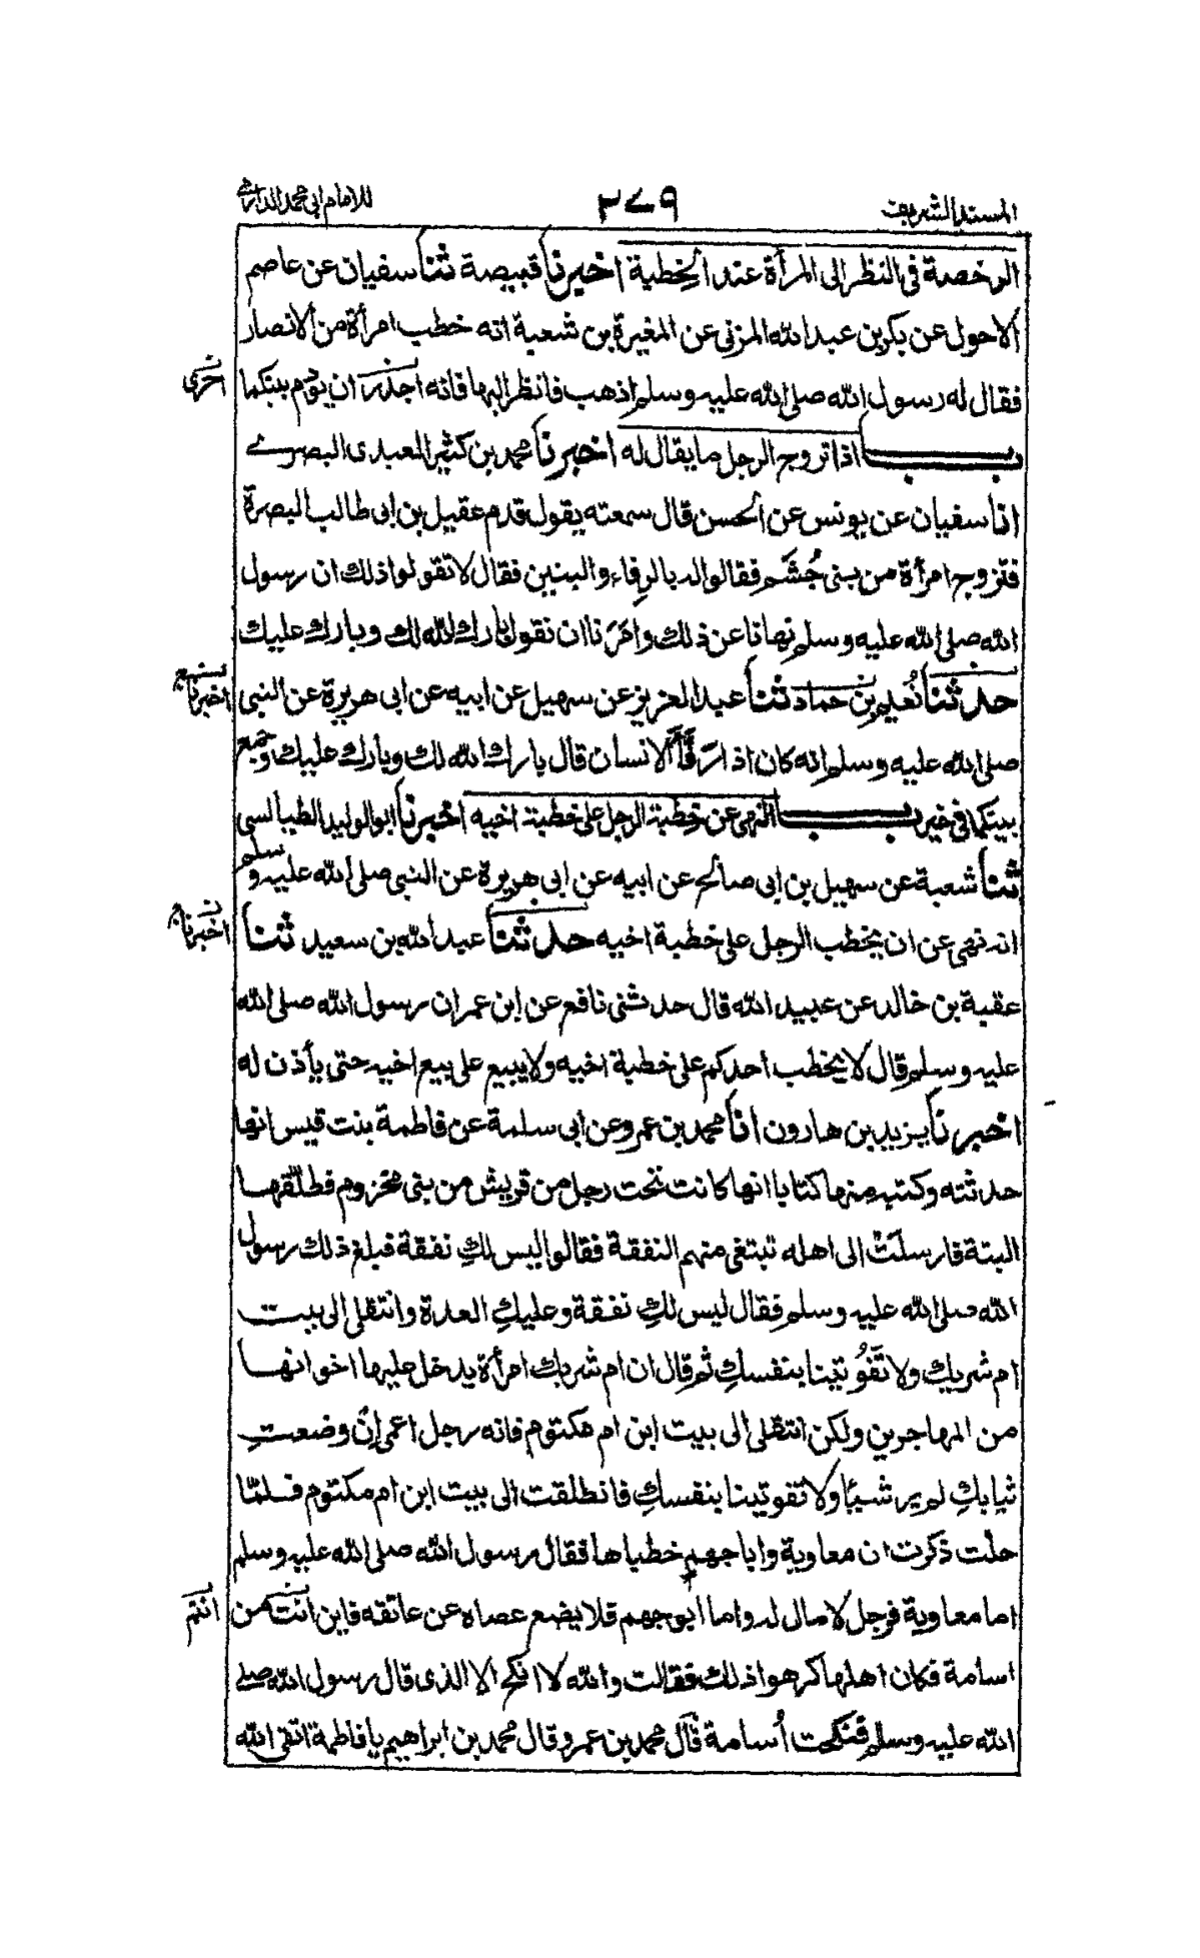 المسند الشريف ٢٧٩ للامام ابى محمد الدارمى
الرخصة فى النظر الى المرأة عند الخطبة اخبرنا قبيصة ثنا سفيان عن عاصم
الاحول عن بكر بن عبد الله المزنى عن المغيرة بن شعبة انه خطب امرأة من الانصار
فقال له رسول الله صلى الله عليه وسلم اذهب فانظر اليها فانه اجدر ان يؤدم بينكما
احرى
باب اذا تزوج الرجل ما يقال له اخبرنا محمد بن كثير العبدى البصرى
انا سفيان عن يونس عن الحسن قال سمعته يقول قدم عقيل بن ابى طالب البصرة
فتزوج امرأة من بنى جُشَم فقالوا له بالرِفاء والبنين فقال لا تقولوا ذلك ان رسول
الله صلى الله عليه وسلم نهانا عن ذلك وامَرَنا ان نقول بارك الله لك وبارك عليك
حدثنا نُعيم بن حماد ثنا عبد العزيز عن سهيل عن ابيه عن ابى هريرة عن النبى
اخبرنا
صلى الله عليه وسلم انه كان اذا رَفَّأَ الانسان قال بارك الله لك وبارك عليك وجمع
بينكما فى خير باب النهى عن خطبة الرجل على خطبة اخيه اخبرنا ابو الوليد الطيالسى
ثنا شعبة عن سهيل بن ابى صالح عن ابيه عن ابى هريرة عن النبى صلى الله عليه وسلم
انه نهى عن ان يخطب الرجل على خطبة اخيه حدثنا عبد الله بن سعيد ثنا
اخبرنا
عقبة بن خالد عن عبيد الله قال حدثنى نافع عن ابن عمر ان رسول الله صلى الله
عليه وسلم قال لا يخطب احدكم على خطبة اخيه ولا يبيع على بيع اخيه حتى يأذن له
اخبرنا يزيد بن هارون انا محمد بن عمرو عن ابى سلمة عن فاطمة بنت قيس انها
حدثته وكتبه منها كتابا انها كانت تحت رجل من قريش من بنى مخزوم فطلّقها
البتة فارسلَتْ الى اهله تبتغى منهم النفقة فقالوا ليس لكِ نفقة فبلغ ذلك رسول
الله صلى الله عليه وسلم فقال ليس لكِ نفقة وعليكِ العدة وانتقلى الى بيت
ام شريك ولا تَفُوتينا بنفسكِ ثم قال ان ام شريك امرأة يدخل عليها اخوانها
من المهاجرين ولكن انتقلى الى بيت ابن ام مكتوم فانه رجل اعمى اِنْ وضعتِ
ثيابكِ لم ير شيئًا ولا تفوتينا بنفسكِ فانطلقت الى بيت ابن ام مكتوم فلمّا
حلّت ذكرت ان معاوية وابا جهم خطباها فقال رسول الله صلى الله عليه وسلم
اما معاوية فرجل لا مال له واما ابو جهم فلا يضع عصاه عن عاتقه فاين انت من
انتم
اسامة فكان اهلها كرهوا ذلك فقالت والله لا انكح الا الذى قال رسول الله صلى
الله عليه وسلم فنكحت اُسامة قال محمد بن عمرو قال محمد بن ابراهيم يا فاطمة اتقى الله